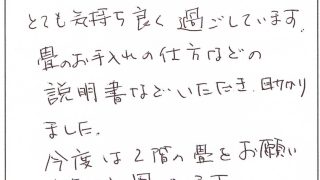 とても気持ち良く過ごしています.
畳のお手入れの仕方などの
説明書などいただき、助かり
ました.
今度は2階の畳をお願い